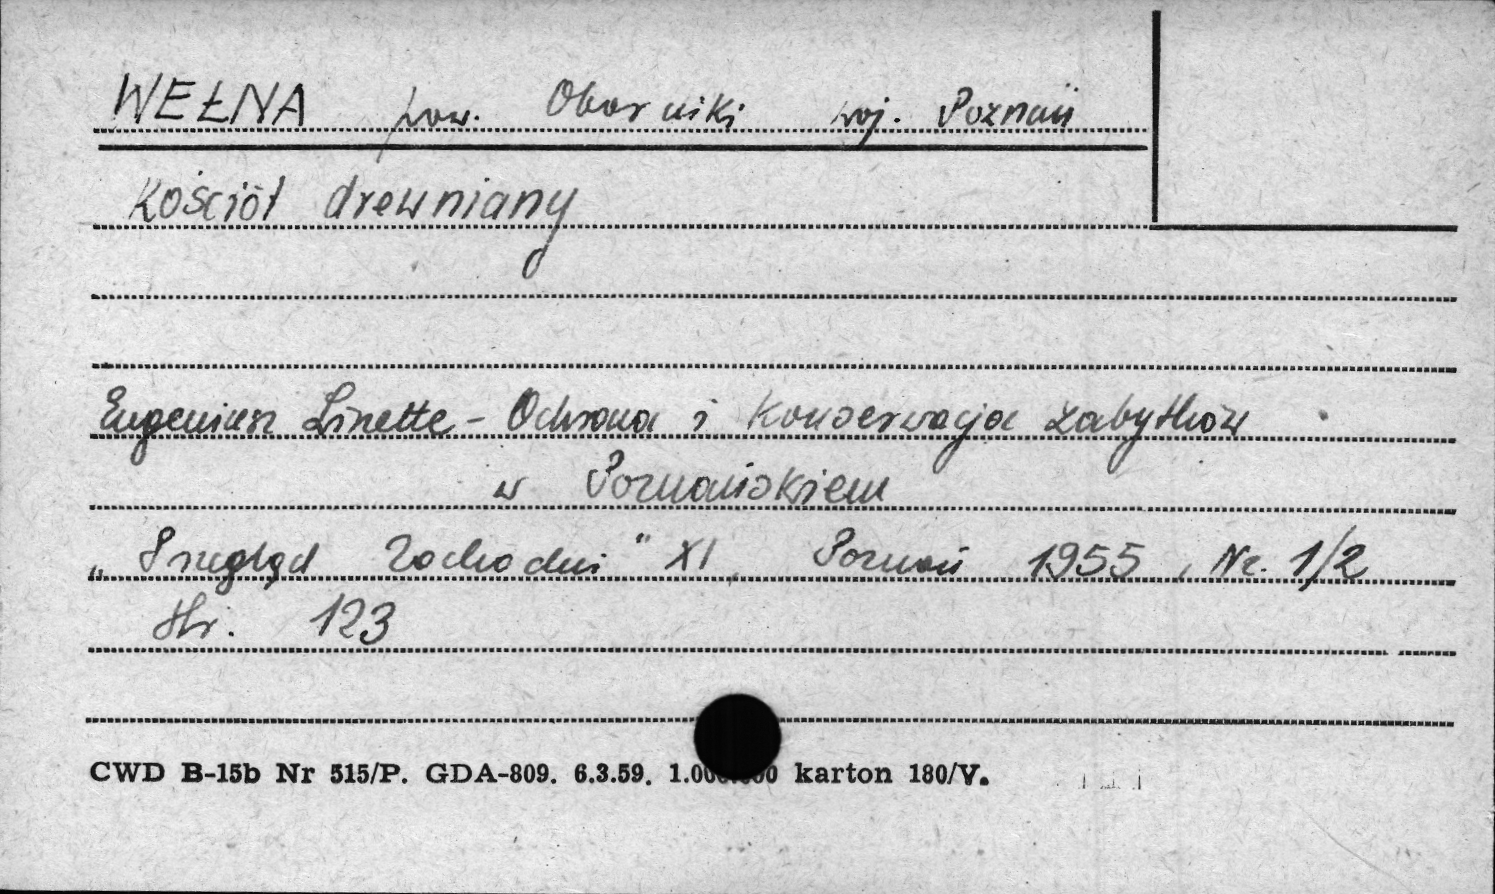 WEŁNA pow. Oborniki woj. Poznań
Kościół drewniany
Eugeniusz Linette - Ochrona i Konserwacja zabytków
w Poznańskiem
„Przegląd Zachodni" XI, Poznań 1955, Nr. 1/2
str. 123
CWD B-15b Nr 515/P. GDA-809. 6.3.59. 1.000.000 karton 180/V.